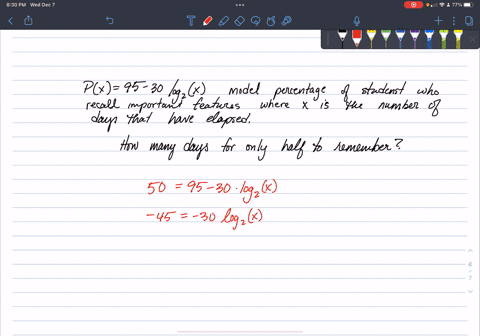 8:30 PM Wed Dec 7
77%
P(x) = 95 - 30 log₂(x) model percentage of student who
recall important features where x is the number of
days that have elapsed.
How many days for only half to remember?
50 = 95 - 30 · log₂(x)
-45 = -30 log₂(x)